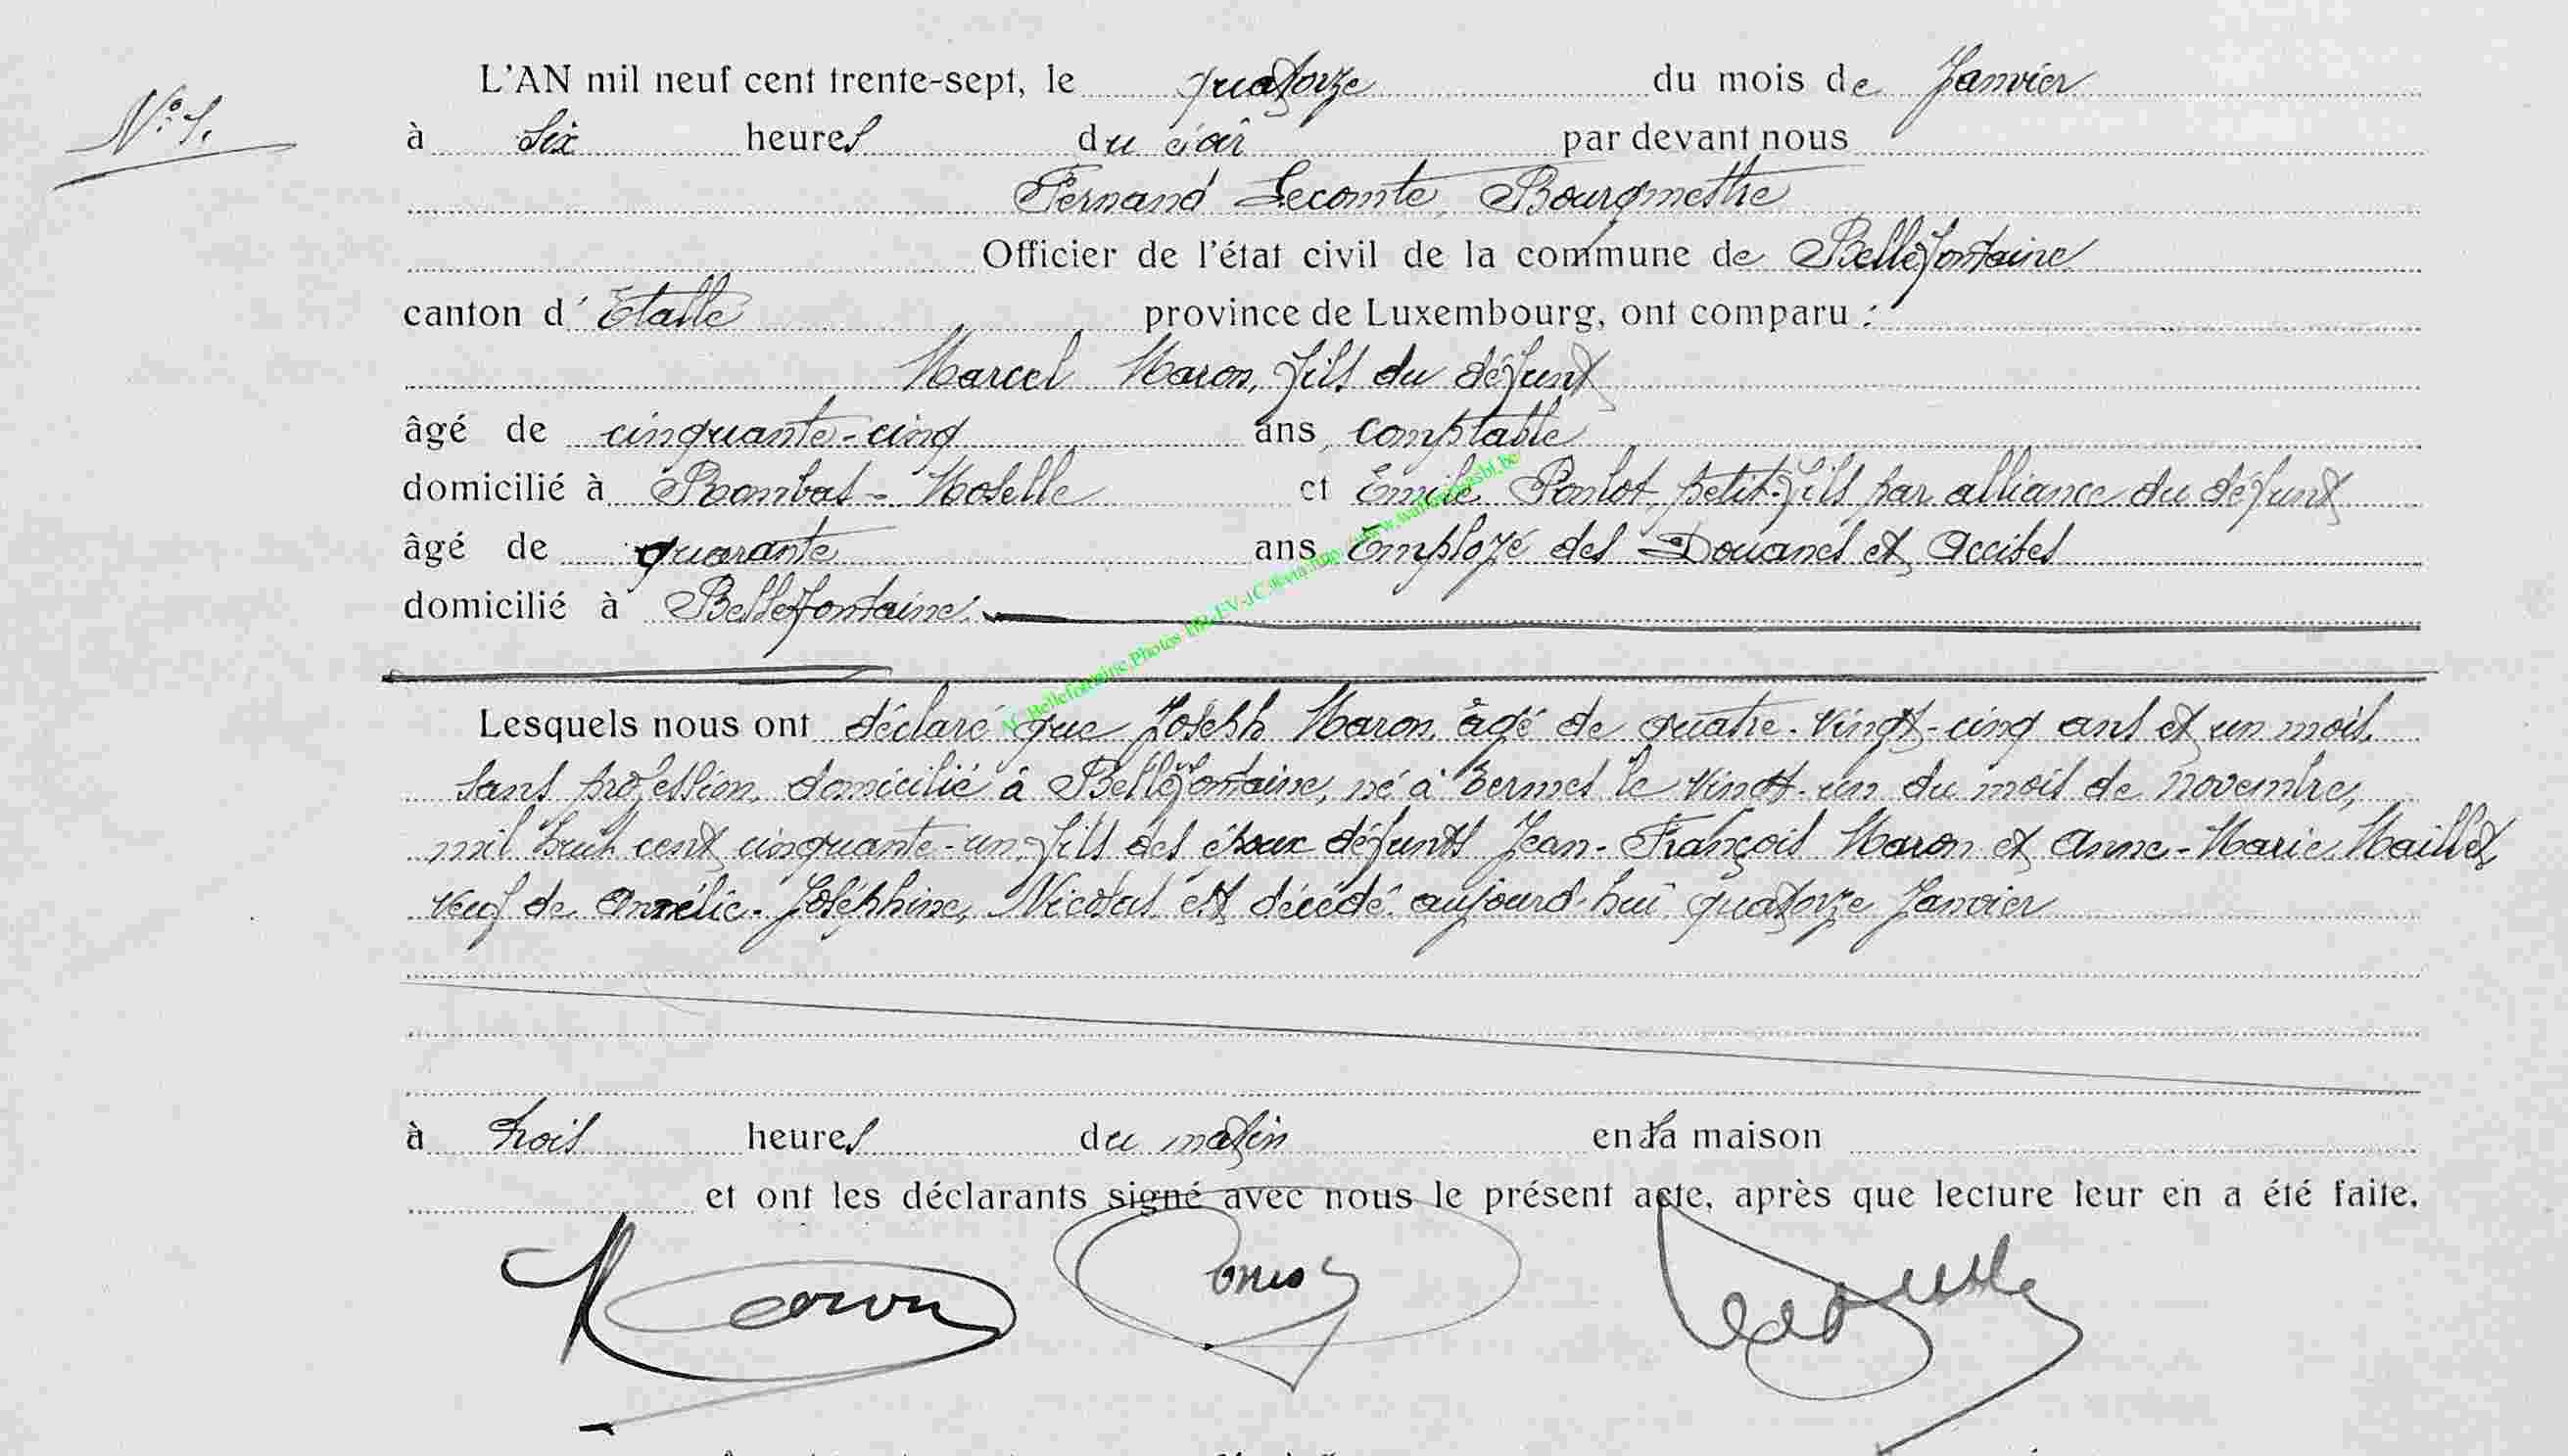 N° 1.
L'AN mil neuf cent trente-sept, le quatorze du mois de Janvier
à six heures du soir par devant nous
Fernand Lecomte, Bourgmestre
Officier de l'état civil de la commune de Bellefontaine
canton d'Etalle province de Luxembourg, ont comparu :
Marcel Maron, fils du défunt
âgé de cinquante-cinq ans, comptable
domicilié à Rombas - Moselle et Emile Ponlot, petit-fils par alliance du défunt
âgé de quarante ans Employé des Douanes et Accises
domicilié à Bellefontaine.
Lesquels nous ont déclaré que Joseph Maron, âgé de quatre-vingt-cinq ans et un mois,
sans profession, domicilié à Bellefontaine, né à Termes le vingt-un du mois de novembre,
mil huit cent cinquante-un, fils des époux défunts Jean-François Maron et Anne-Marie Maillet,
veuf de Amélie-Joséphine, Nicolas est décédé aujourd'hui quatorze Janvier
à trois heures du matin en sa maison
et ont les déclarants signé avec nous le présent acte, après que lecture leur en a été faite.
Maron Lecomte